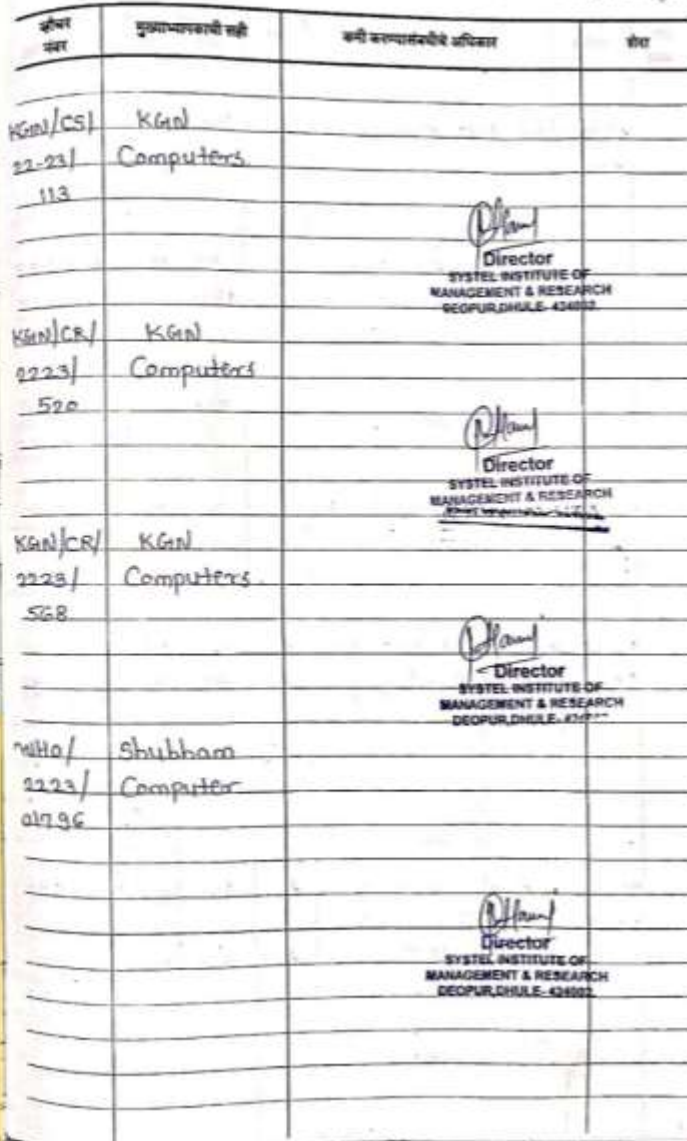 व्हौचर नंबर मुख्याध्यापकाची सही कमी करण्यासंबंधीचे अधिकार शेरा
KGN/CS/ KGN
22-23/ Computers
113
Director
SYSTEL INSTITUTE OF
MANAGEMENT & RESEARCH
DEOPUR,DHULE- 424002
KGN/CR/ KGN
2223/ Computers
520
Director
SYSTEL INSTITUTE OF
MANAGEMENT & RESEARCH
KGN/CR/ KGN
2223/ Computers
568
Director
SYSTEL INSTITUTE OF
MANAGEMENT & RESEARCH
DEOPUR,DHULE-
WHO/ Shubham
2223/ Computer
01796
Director
SYSTEL INSTITUTE OF
MANAGEMENT & RESEARCH
DEOPUR,DHULE- 424002